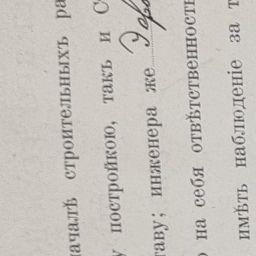 началѣ строительныхъ ра
у постройкою, такъ и С
таву; инженера же
о на себя отвѣтственность
имѣть наблюденіе за т